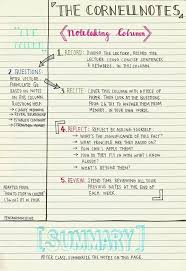 THE CORNELLNOTES
Notetaking Column
1. RECORD: DURING THE LECTURE, RECORD THE
LECTURE USING CONCISE SENTENCES
& KEYWORDS, IN THIS COLUMN.
2. QUESTIONS:
AFTER LECTURE,
FORMULATE QS
BASED ON NOTES
IN THIS COLUMN.
QUESTIONS HELP:
CLARIFY MEANING,
REVEAL RELATIONSHIP
ESTABLISH CONTINUITY
STRENGTHEN MEMORY
3. RECITE: COVER THIS COLUMN WITH A PIECE OF
PAPER. THEN LOOK AT THE QUESTIONS
FROM 2. & TRY TO ANSWER THEM
FROM MEMORY, IN YOUR OWN WORDS.
4. REFLECT: REFLECT BY ASKING YOURSELF:
WHAT'S THE SIGNIFICANCE OF THIS FACT?
WHAT PRINCIPLE ARE THIS BASED ON?
HOW CAN I APPLY THEM?
HOW DO THEY FIT IN WITH WHAT I KNOW
ALREADY?
WHAT'S BEYOND THEM?
5. REVIEW: SPEND TIME REVIEWING ALL YOUR
PREVIOUS NOTES AT THE END OF
EACH WEEK.
ADAPTED FROM
"HOW TO STUDY IN COLLEGE"
[SUMMARY]
AFTER CLASS, SUMMARIZE THE NOTES ON THIS PAGE.